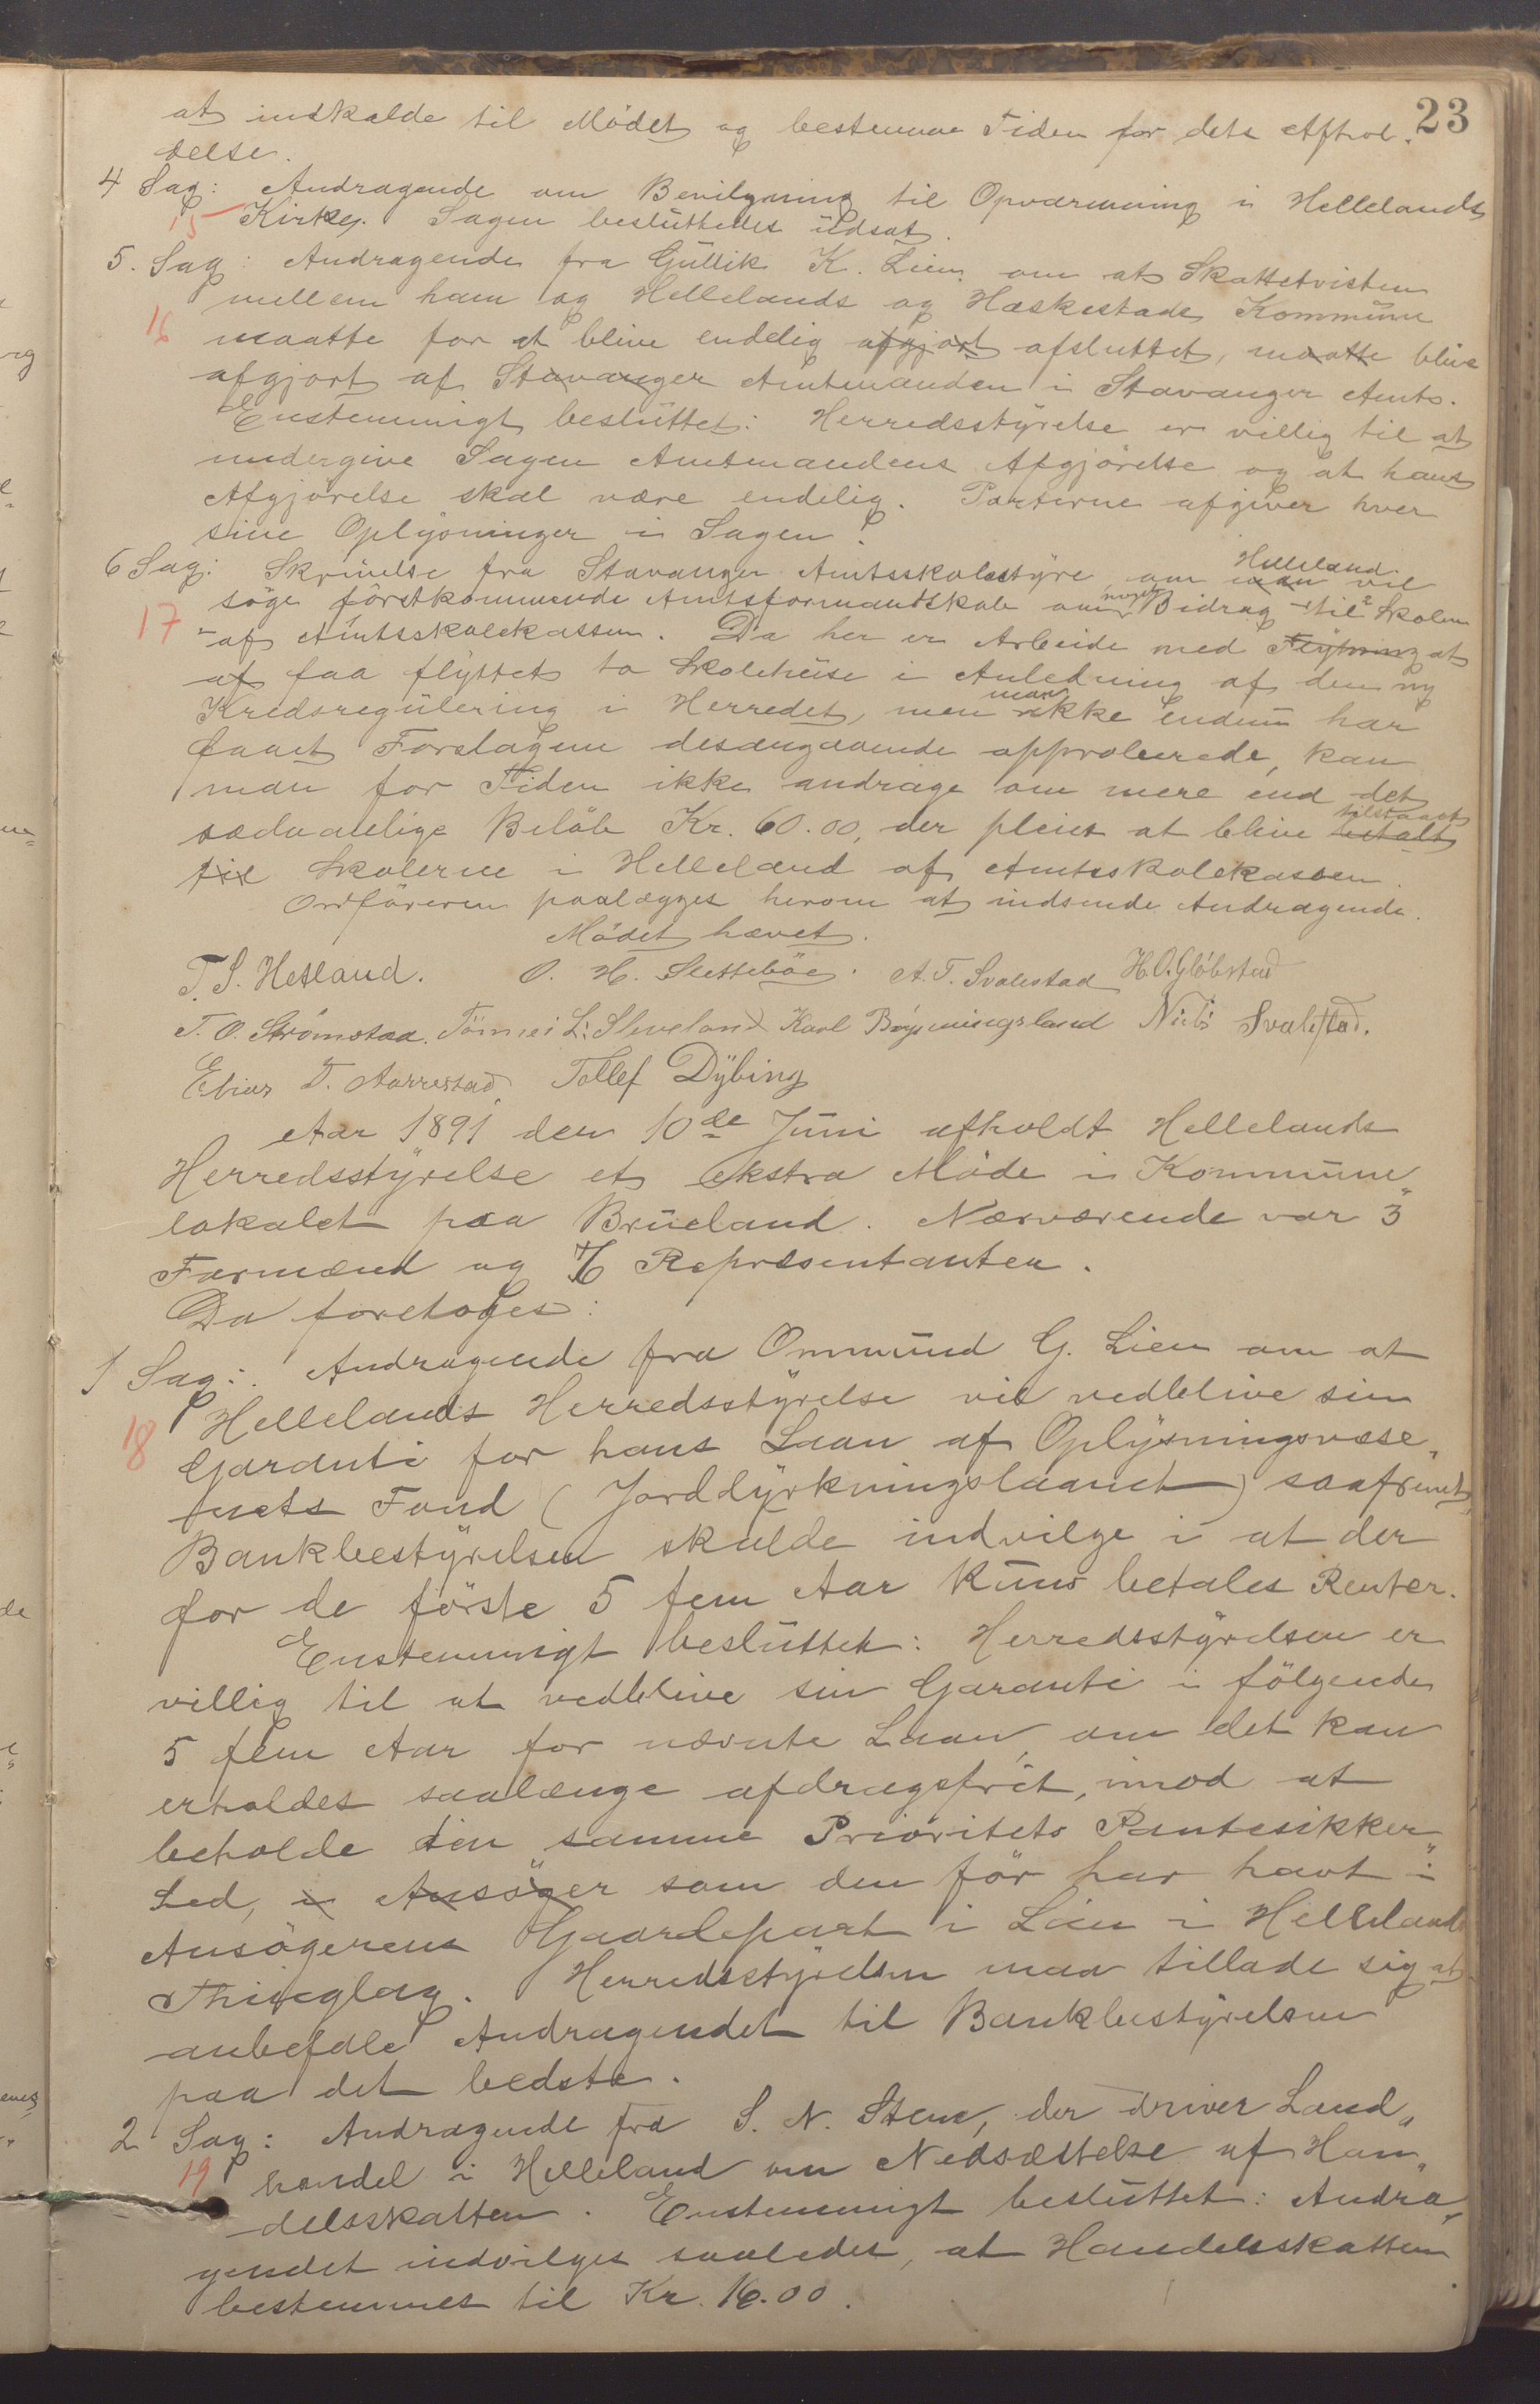 23
at indkalde til Mödet og bestemme Tiden for dets Afhol-
delse.
4 Sag: Andragende om Bevilgning til Opvarmning i Hellelands
15 Kirke. Sagen besluttedes udsat.
5. Sag: Andragende fra Gullik K. Lien om at Skattetvisten
mellem ham og Hellelands og Heskestads Kommune
16 maatte for at blive endelig afgjort afsluttet, maatte blive
afgjort af Stavanger Amtmanden i Stavanger Amts.
Enstemmigt besluttet: Herredsstyrelse er villig til at
undergive Sagen Amtmandens Afgjörelse og at hans
Afgjörelse skal være endelig. Parterne afgiver hver
sine Oplysninger i Sagen.
6 Sag: Skrivelse fra Stavanger Amtsskolestyre, om man Helleland vil
17 söge förstkommende Amtsformandskab om noget Bidrag til Skolen
af Amtsskolekassen. Da her er Arbeide med Flytning at
af faa flyttet to Skolehuse i Anledning af den ny
Kredsregulering i Herredet, men man ikke endnu har
faaet Forslagene desangaaende approberede, kan
man for Tiden ikke andrage om mere end det
sædvanlige Belöb Kr. 60.00, der pleier at blive betalt tilstaaet
til Skolerne i Helleland af Amtsskolekassen.
Ordföreren paalægges herom at indsende Andragende.
Mödet hævet.
T. S. Hetland. O. H. Sletteböe. A. T. Svalestad H. O. Glöbstad
T. O. Strömstad. Tönnes L. Sleveland Karl Böymingsland Niels Svalestad.
Elias T. Aarrestad, Tollef Dybing
Aar 1891 den 10de Juni afholdt Hellelands
Herredsstyrelse et ekstra Möde i Kommune„
lokalet paa Brueland. Nærværende var 3
Formænd og 7 Repræsentanter.
Da foretoges:
1 Sag: Andragende fra Ommund G. Lien om at
Hellelands Herredsstyrelse vil vedblive sin
18 Garanti for hans Laan af Oplysningsvæse„
nets Fond (Jorddyrkningslaanet) saafremt
Bankbestyrelsen skulde indvilge i at der
for de förste 5 fem Aar kuns betales Renter.
Enstemmigt besluttet: Herredsstyrelsen er
villig til at vedblive sin Garanti i fölgende
5 fem Aar for nævnte Laan, om det kan
erholdes saalænge afdragsfrit, imod at
beholde sin samme Prioritets Pantesikker„
hed, i Ansöger som den för har havt i
Ansögerens Gaardepart i Lien i Hellelands
Thinglag. Herredsstyrelsen maa tillade sig at
anbefale Andragendet til Bankbestyrelsen
paa det bedste.
2 Sag: Andragende fra S. N. Stene, der driver Land„
19 handel i Helleland om Nedsættelse af Han„
delsskatten. Enstemmigt besluttet: Andra„
gendet indvilges saaledes, at Handelsskatten
bestemmes til Kr. 16.00.